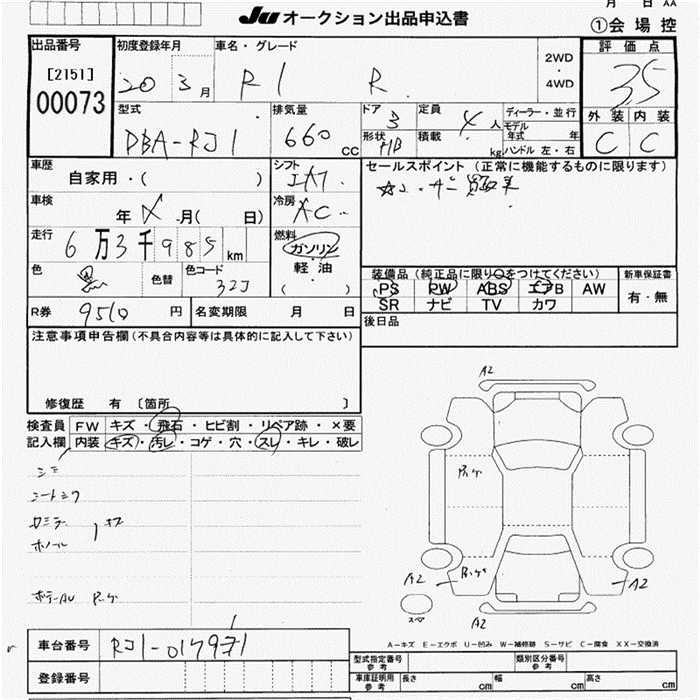 月 日 AA
Ju オークション出品申込書
①会 場 控
出品番号
[2151]
00073
初度登録年月
20 3月
車名・グレード
R1 R
2WD
・
4WD
評 価 点
3.5
外 装 内 装
C C
型式
DBA-RJ1
排気量
660 cc
ドア 3
形状 HB
定員 4 人
積載 kg
ディーラー・並行
モデル年式 年
ハンドル 左・右
車歴
自家用・( )
車検
年 月( 日)
走行
6万3千985 km
色
色替
色コード
32J
シフト
IAT
冷房
AC
燃料
ガソリン
・
軽 油
( )
セールスポイント (正常に機能するものに限ります)
装備品(純正品に限り○をつけてください)
PS PW ABS エアB AW
SR ナビ TV カワ
新車保証書
有・無
R券 9510 円
名変期限 月 日
後日品
注意事項申告欄(不具合内容等は具体的に記入して下さい)
修復歴 有 〔箇所 〕
検査員記入欄
FW キズ・飛石・ヒビ割・リペア跡・×要
内装 キズ・汚レ・コゲ・穴・スレ・キレ・破レ
A2
A2
A2
A2
スペア
A-キズ E-エクボ U-凹み W-補修跡 S-サビ C-腐食 XX-交換済
車台番号 RJ1-017971
登録番号
型式指定番号 参考
類別区分番号 参考
車庫証明用 参考 長さ cm 幅 cm 高さ cm